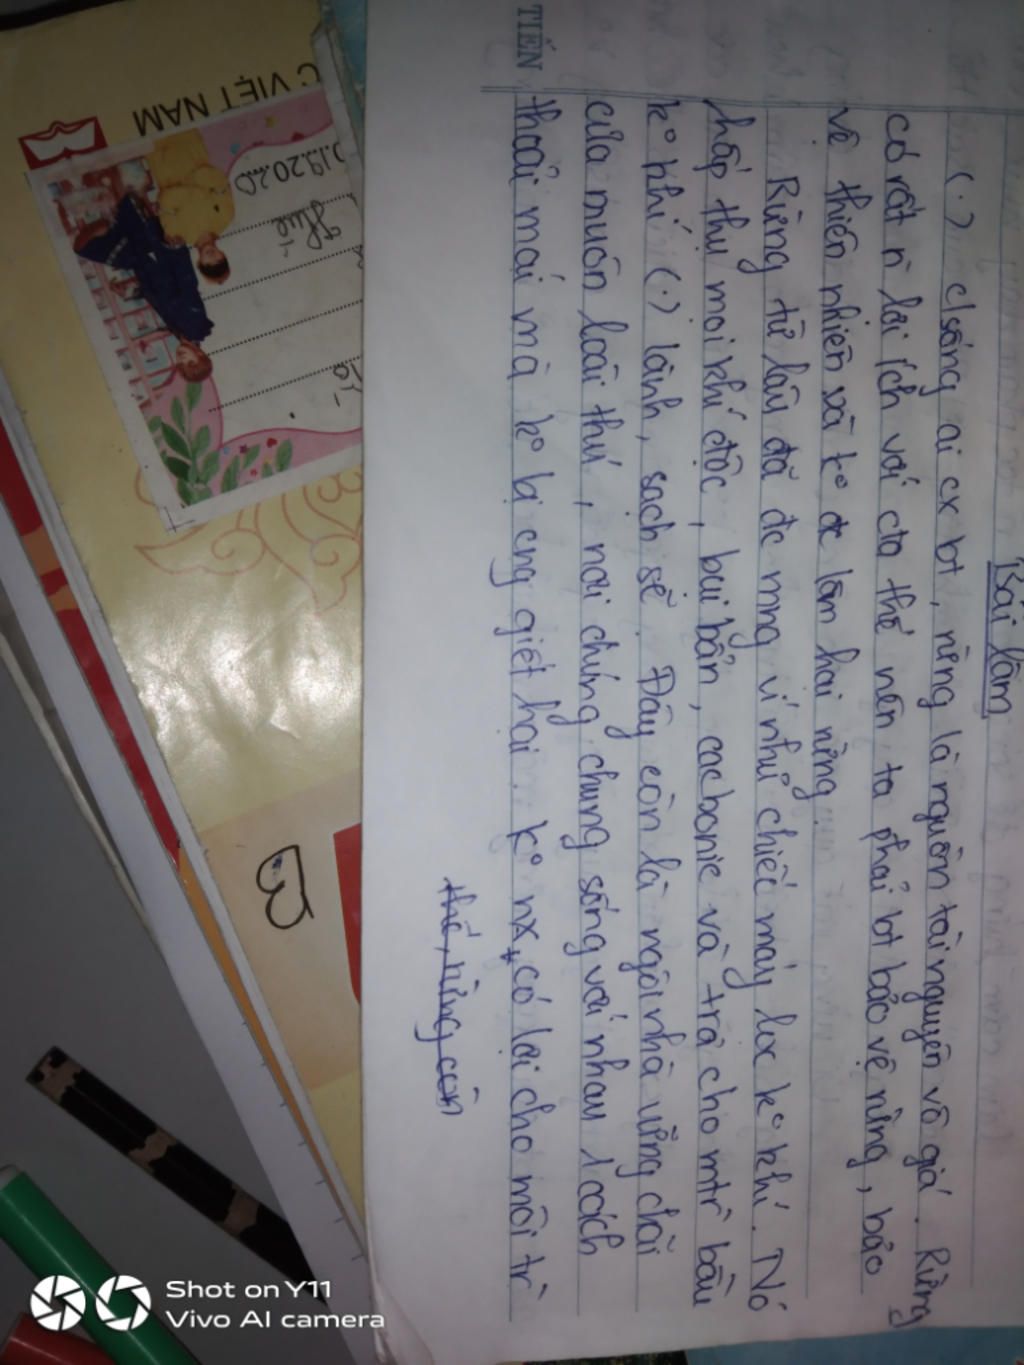 Bài làm
(.) c/sống ai cx bt, rừng là nguồn tài nguyên vô giá. Rừng
có rất n̄ lợi ích với cta thế nên ta phải bt bảo vệ rừng, bảo
vệ thiên nhiên và ko đc làm hại rừng
Rừng từ lâu đã đc mng ví như chiếc máy lọc ko khí. Nó
hấp thụ mọi khí độc, bụi bẩn, cacbonic và trả cho mtr̀ bầu
ko khí (.) lành, sạch sẽ. Đây còn là ngôi nhà vững chãi
của muôn loài thú, nơi chúng chung sống với nhau 1 cách
thoải mái mà ko bị cng giết hại. ko nx, có lợi cho môi tr̀
thế, rừng còn
TIẾN
C VIỆT NAM
.19.20.20
Huế
B
Shot on Y11
Vivo AI camera